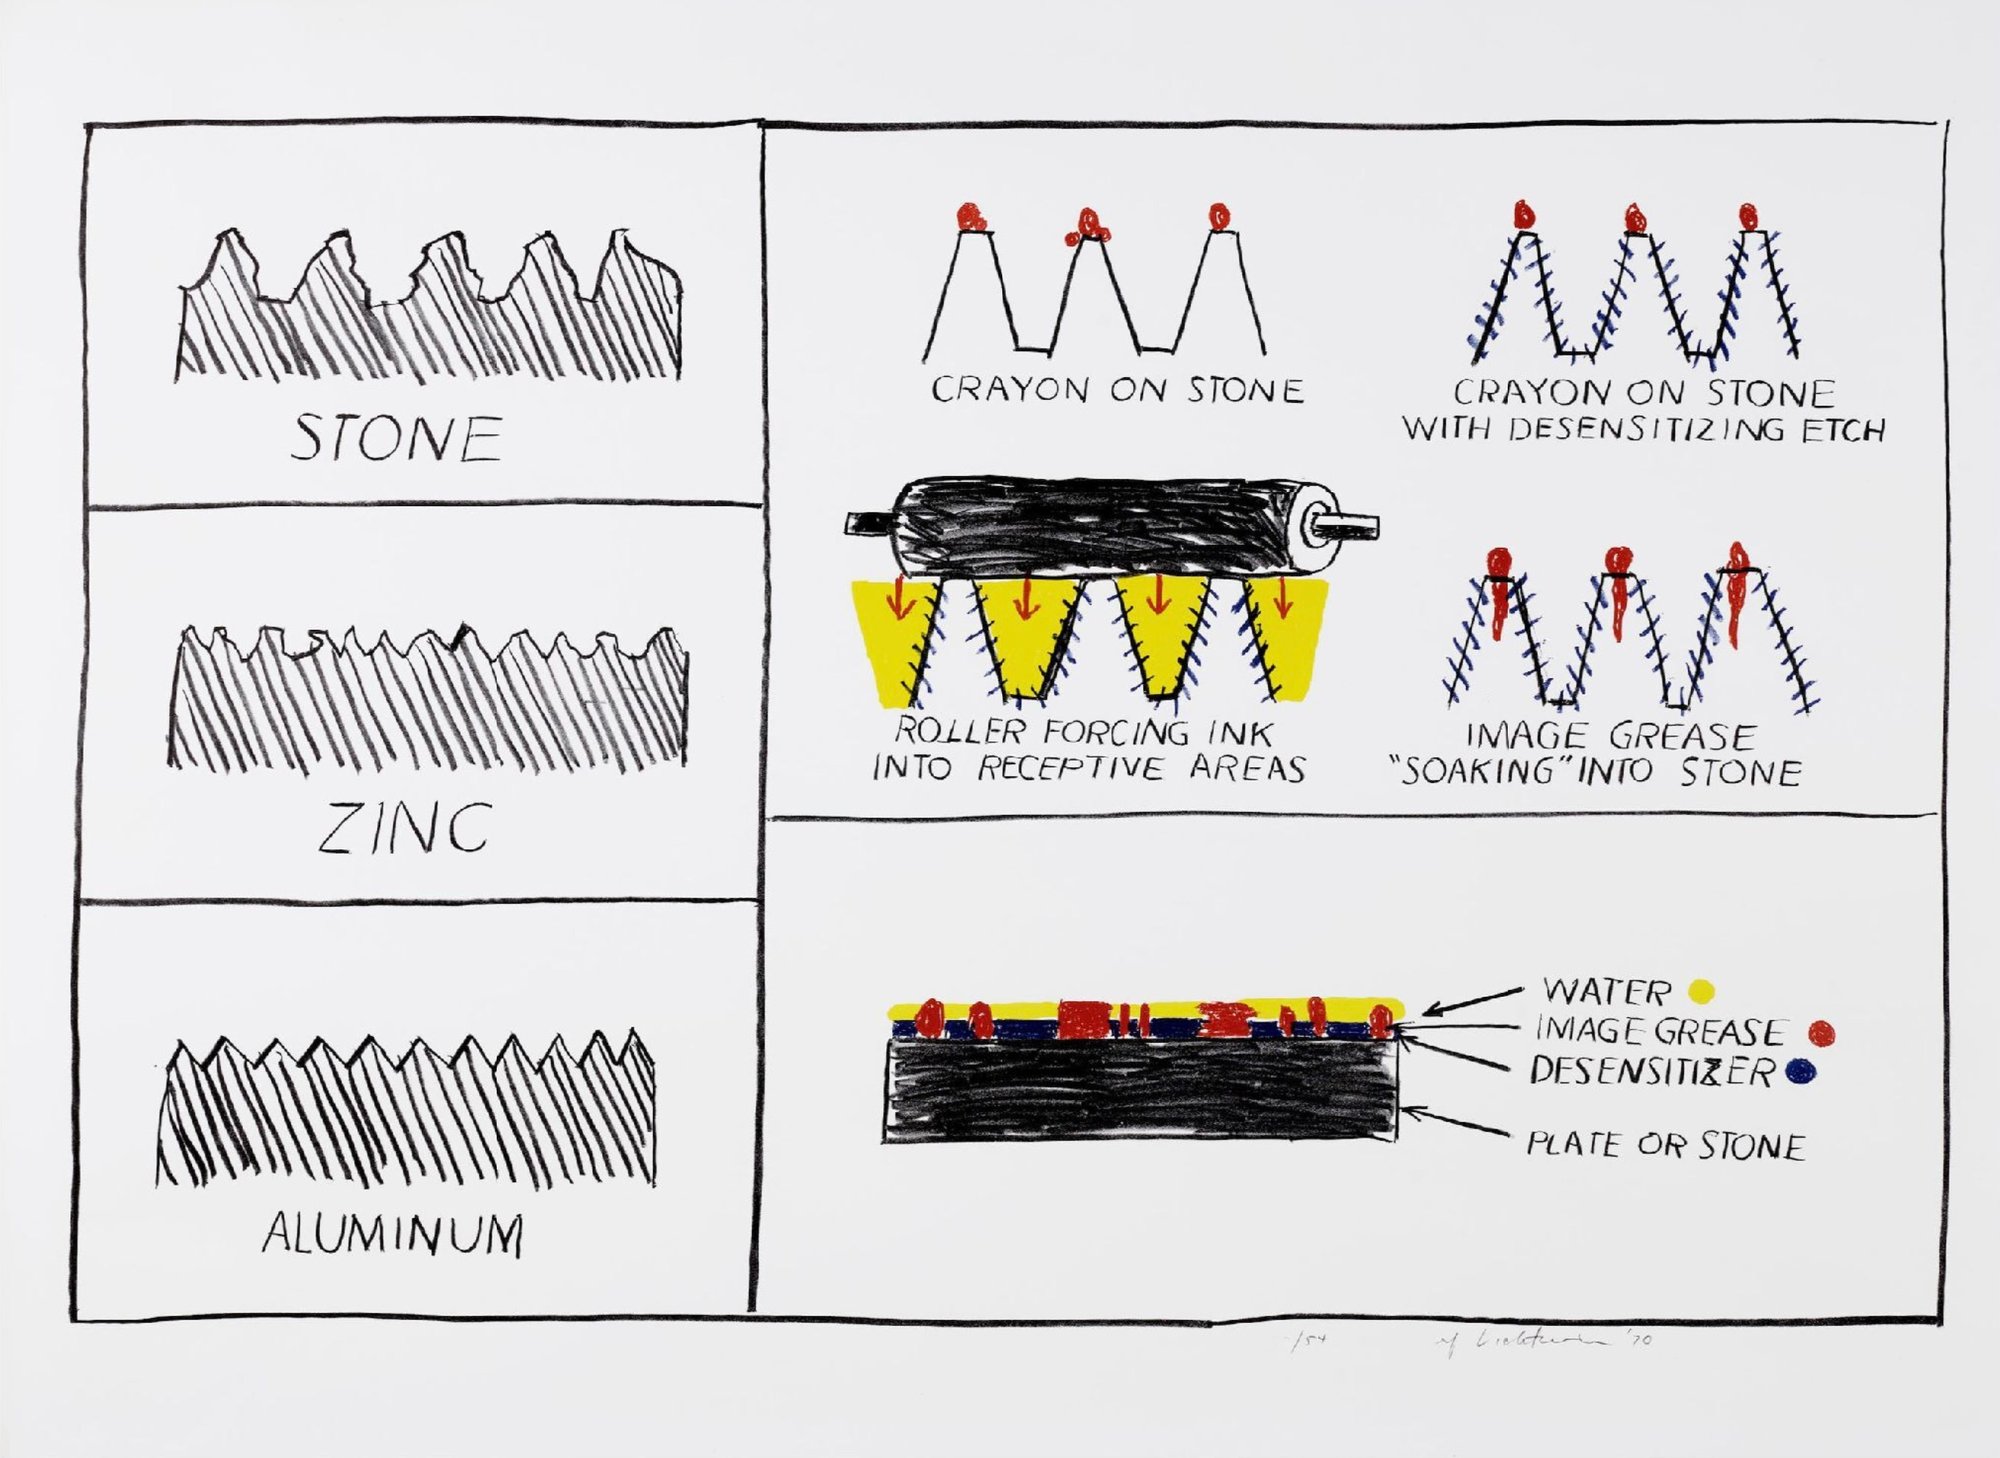 STONE
ZINC
ALUMINUM
CRAYON ON STONE
CRAYON ON STONE
WITH DESENSITIZING ETCH
ROLLER FORCING INK
INTO RECEPTIVE AREAS
IMAGE GREASE
"SOAKING" INTO STONE
WATER
IMAGE GREASE
DESENSITIZER
PLATE OR STONE
/54
rf Lichtenstein '70